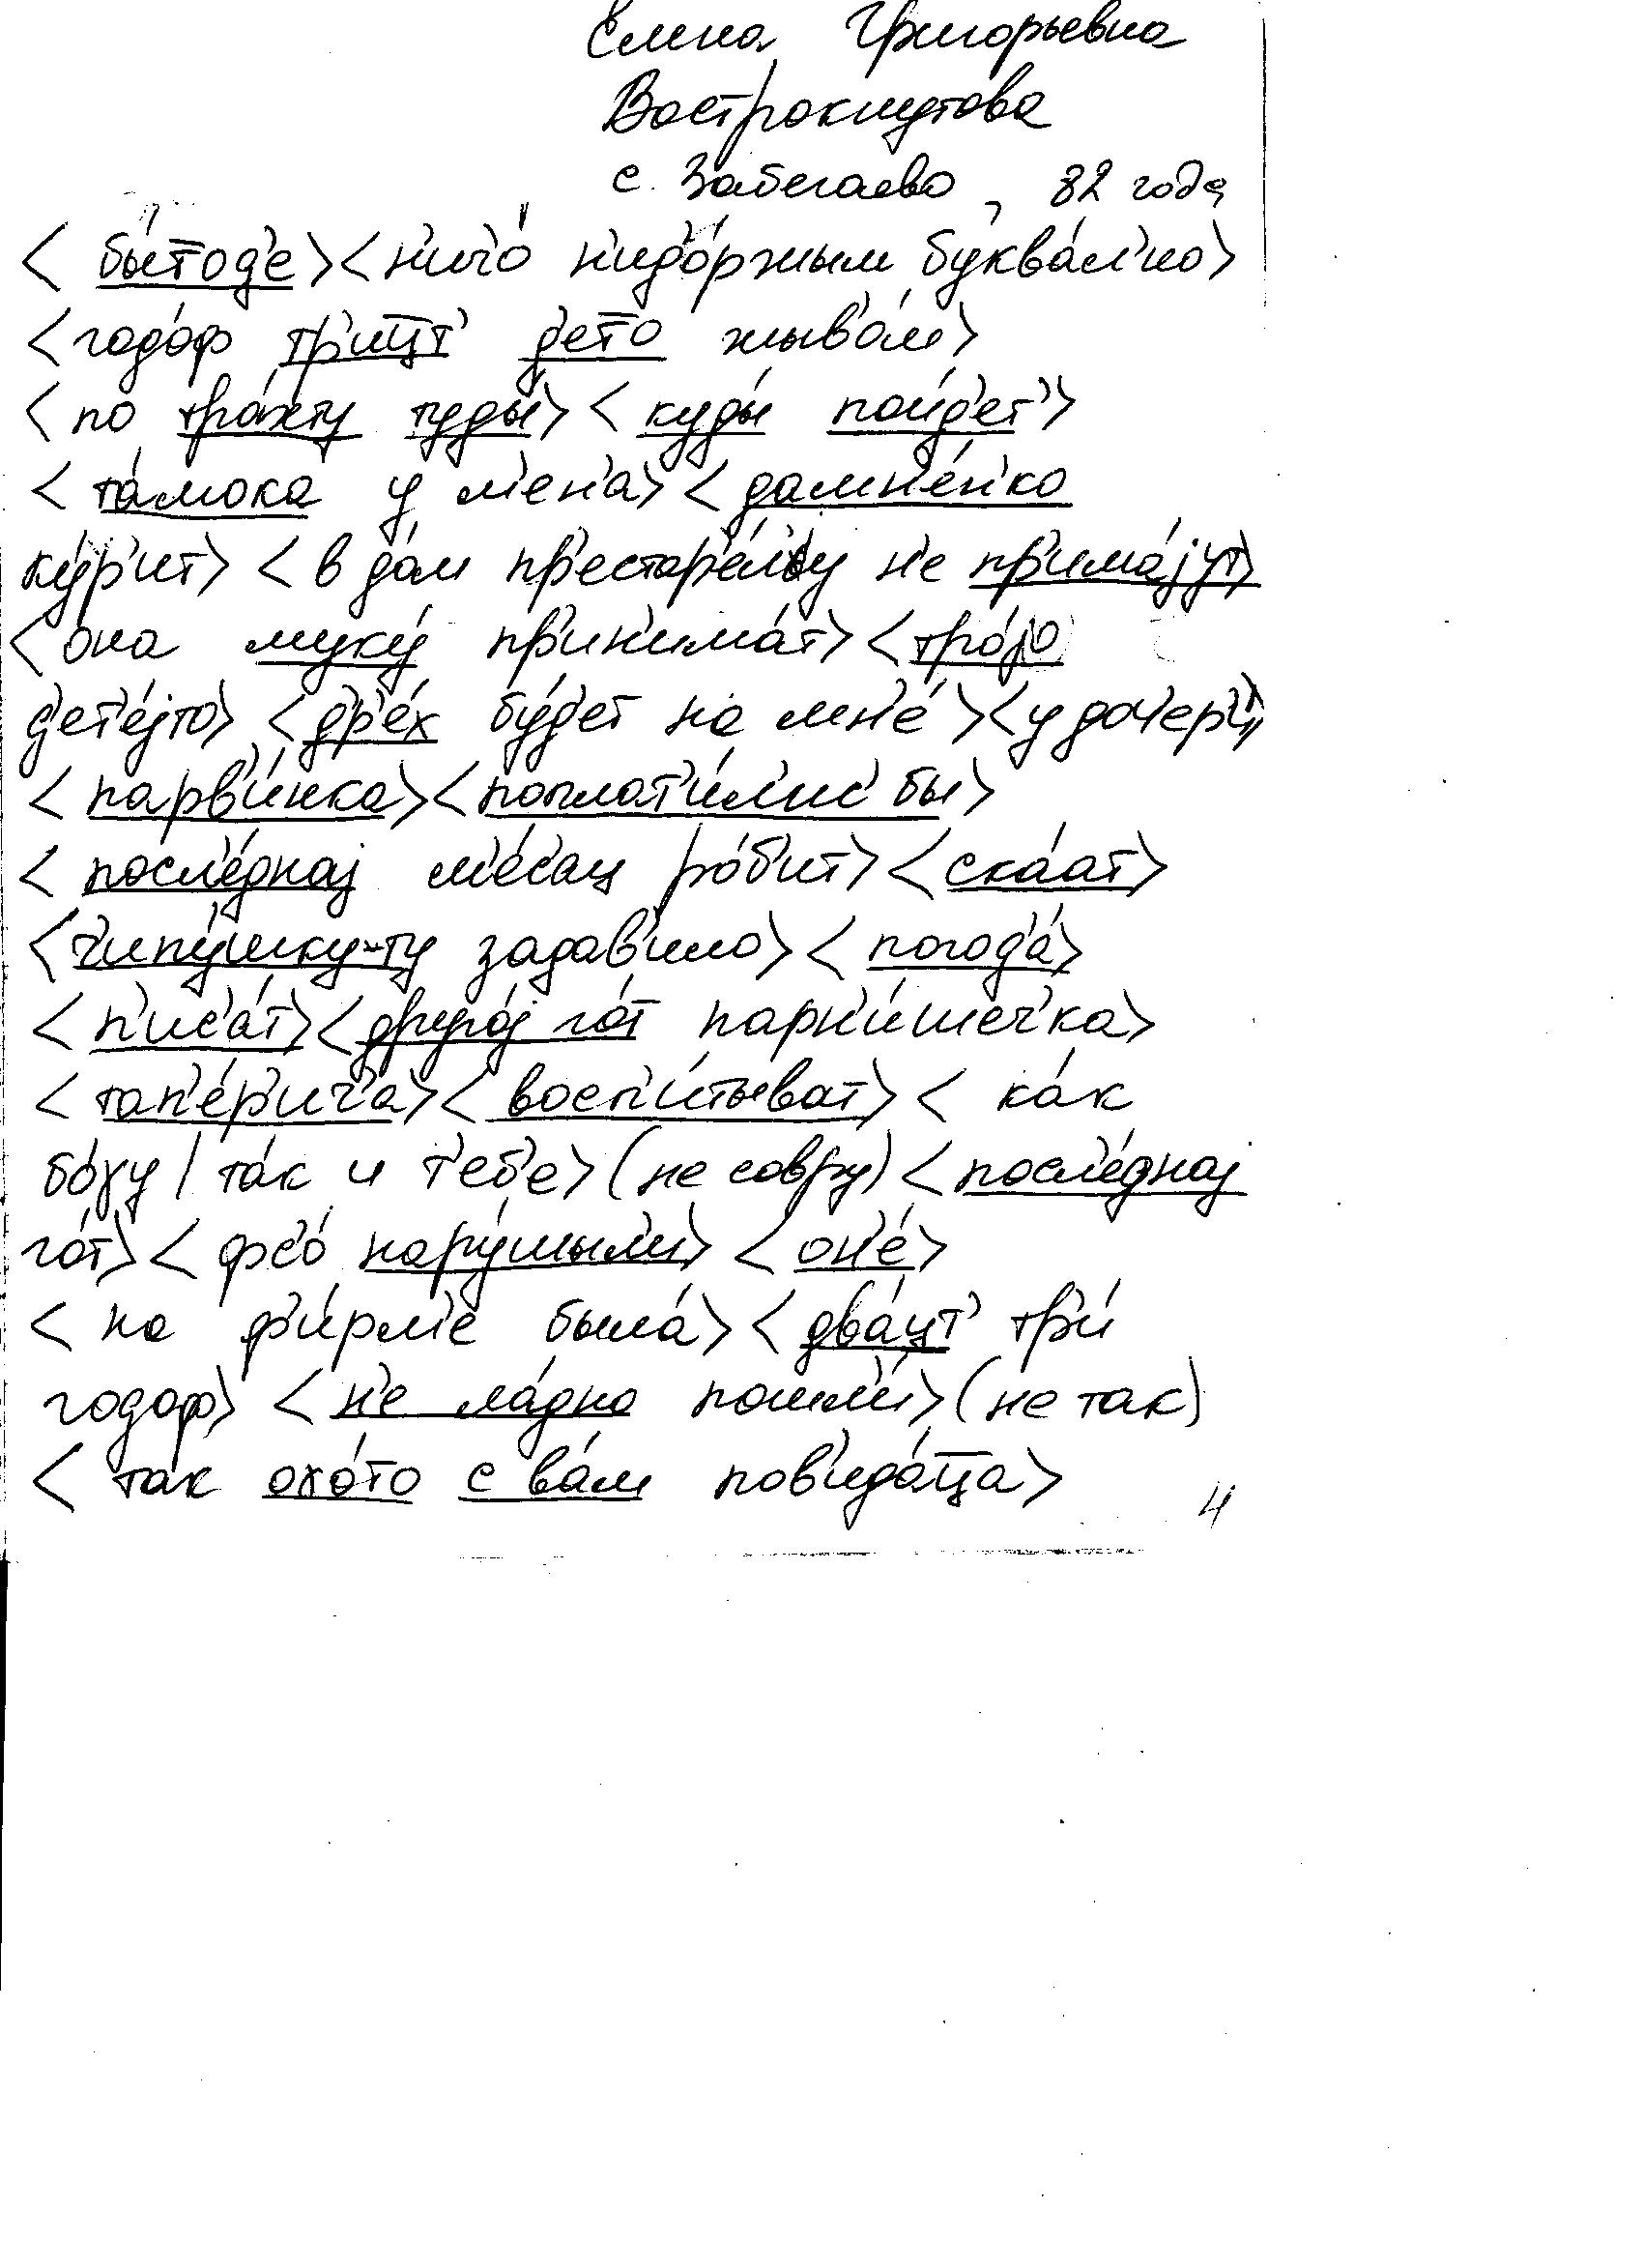 Елена Григорьевна
Вострокнутова
с. Забегаево, 82 года
< бы́тод'е> <н'ич'о́ н'идо́ржым буква́л'но>
<годо́ф тр'ицт' д'ето жыв'о́м>
<по тра́хту туды́> <куды́ пойд'ет'>
<та́мока у м'ен'а́> <дамн'е́н'ко
ку́р'ит> <в до́м пр'естар'е́лыу н'е пр'има́јут>
<она муку́ пр'ин'има́т> <тро́јо
д'ет'е́јто> <др'е́х бу́д'ет на мн'е́> <у дочер'и́>
<парв'и́нка> <поплат'и́л'ис' бы>
<посл'е́днај м'е́с'ац ро́б'ит> <ска́ат>
<ч'ипу́шку-ту задав'ило> <погод'а́>
<п'ис'а́т> <друго́ј го́т парн'и́шеч'ка>
<тап'е́р'ич'а> <восп'и́тыват> <ка́к
бо́γу / та́к и т'еб'е> (не совру) <посл'е́днај
го́т> <фс'о́ нару́шыл'и> <он'е́>
<на ф'и́рм'е была́> <два́цт' тр'и́
годоф> <н'е ла́дно пошл'и́> (не так)
<та́к охо́то с ва́м пов'ида́цца>
4